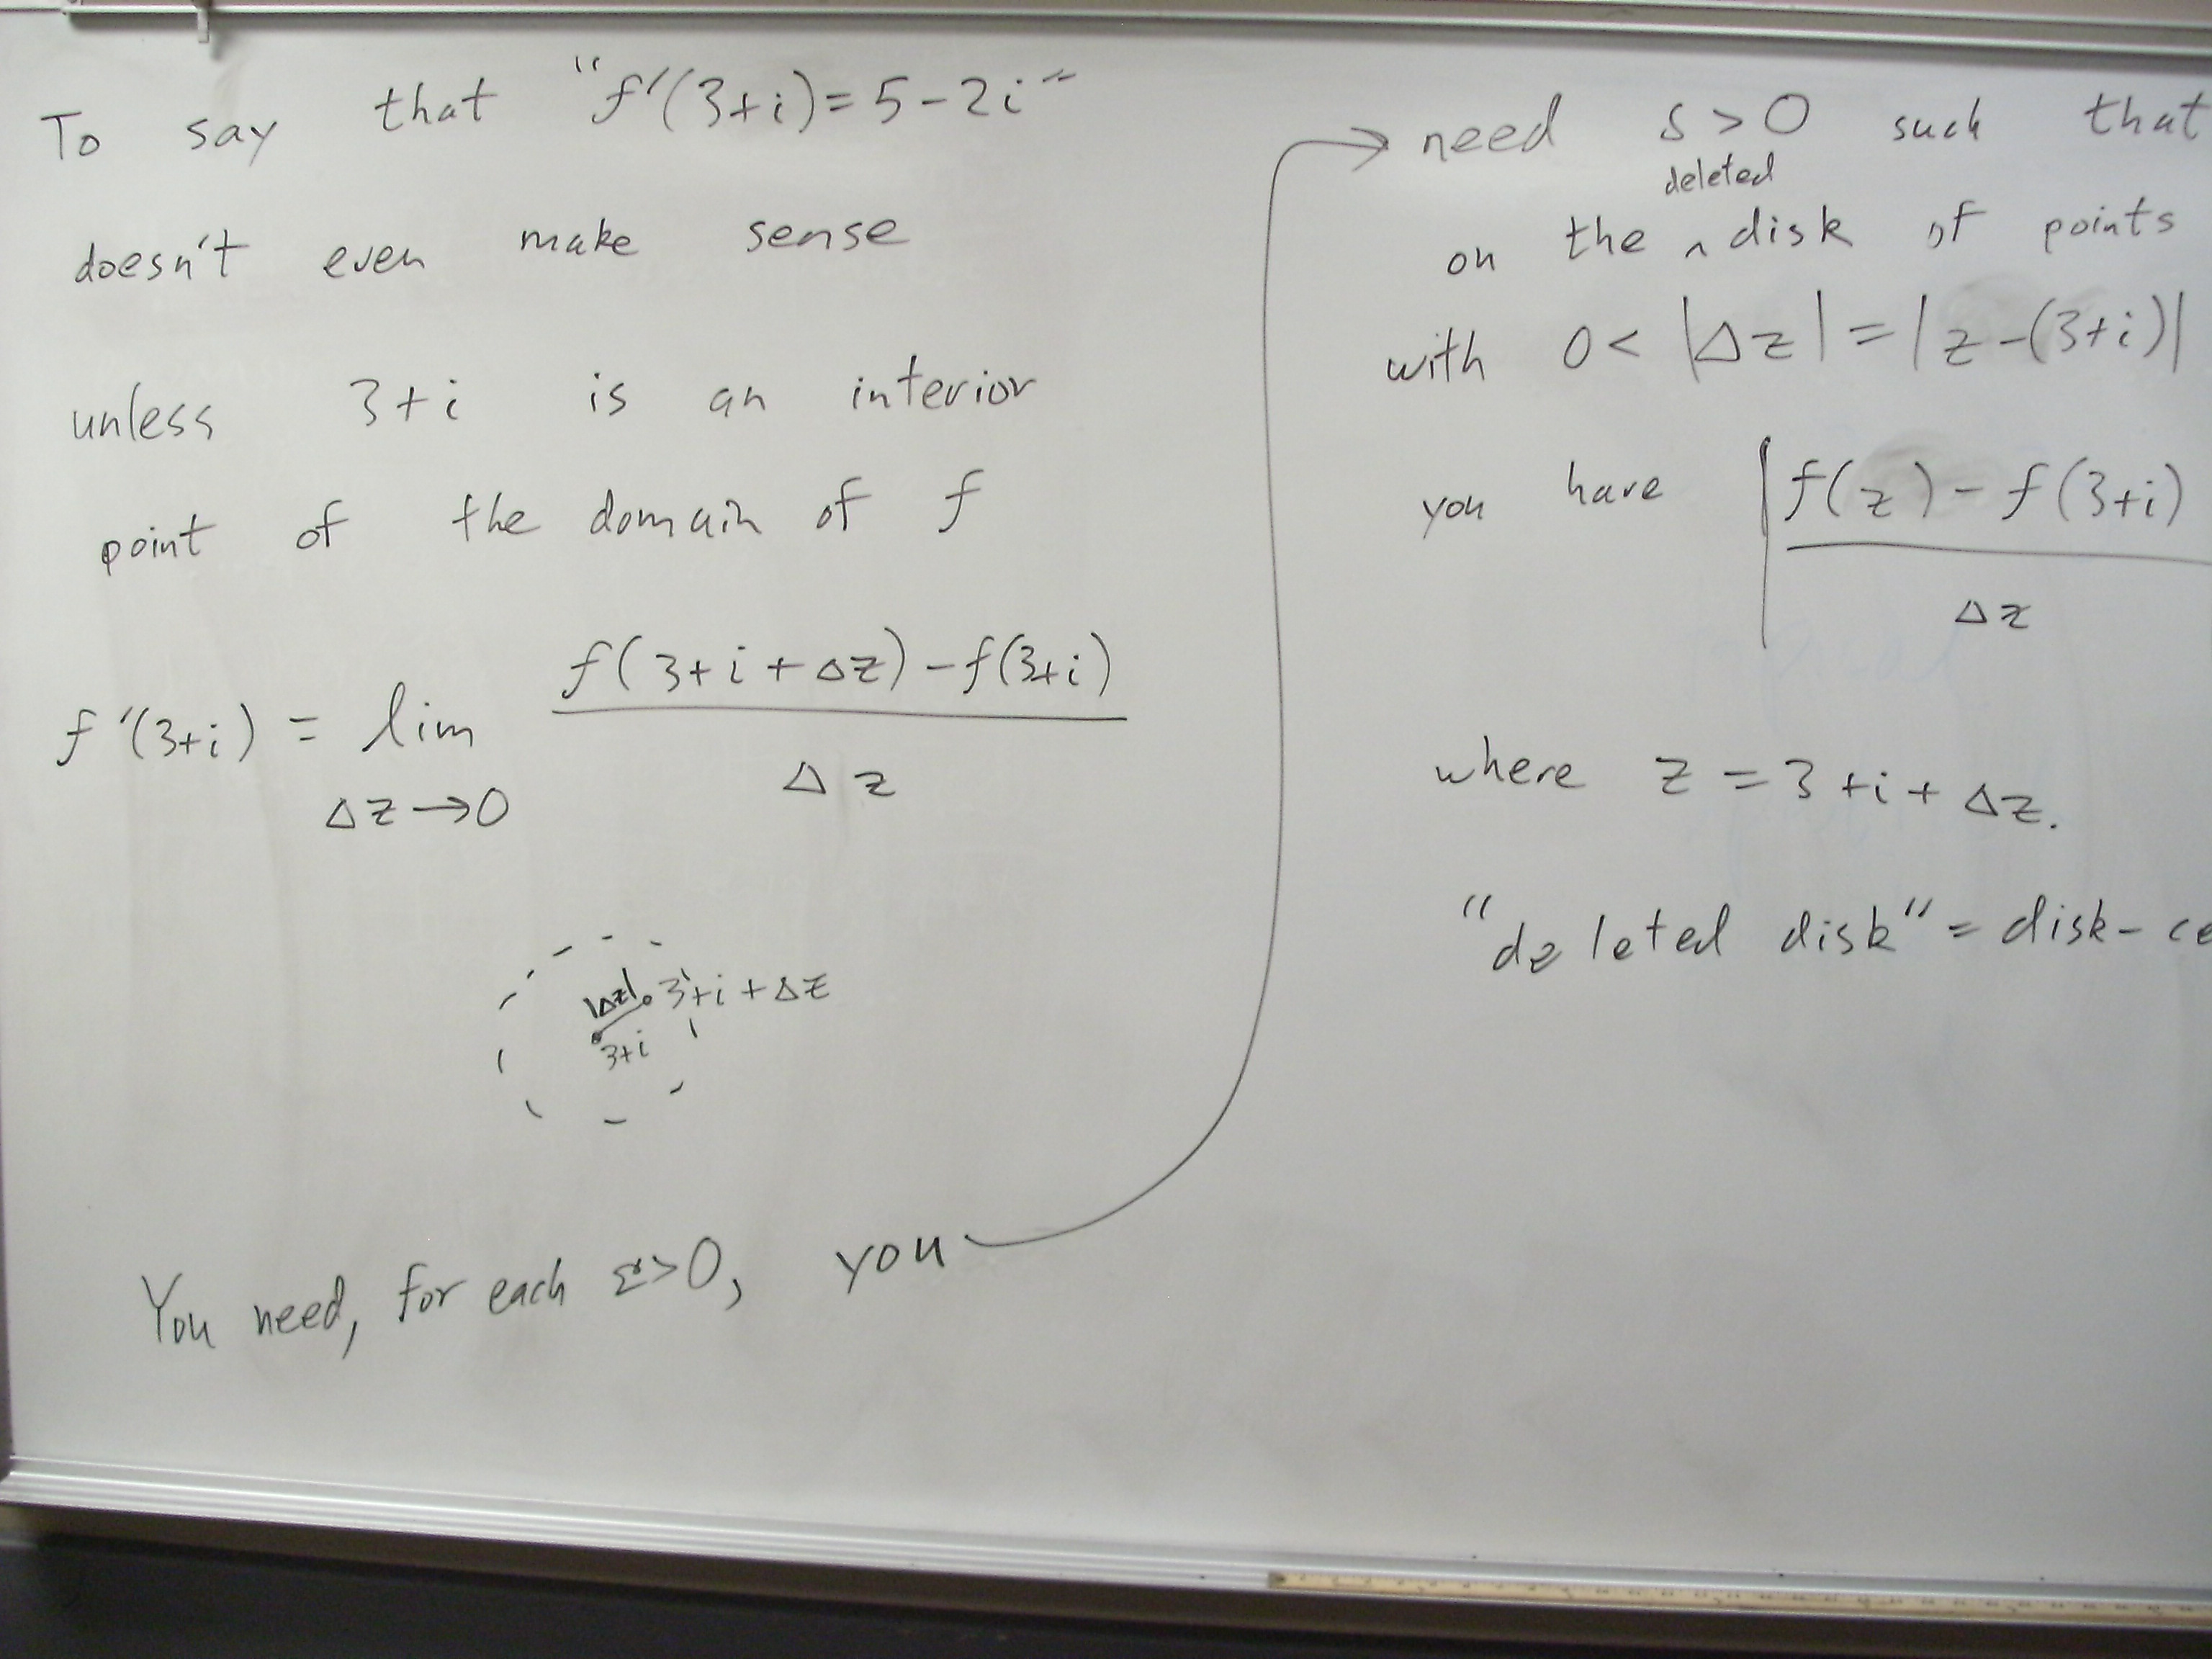 To say that "f'(3+i)=5-2i"
doesn't even make sense
unless 3+i is an interior
point of the domain of f
f'(3+i) = lim f(3+i+Δz)-f(3+i)
Δz→0 Δz
|Δz| 3+i+Δz
3+i
You need, for each ε>0, you
need δ>0 such that
deleted
on the ‸ disk of points
with 0< |Δz| = |z-(3+i)|
you have |f(z)-f(3+i)
Δz
where z = 3+i+Δz.
"deleted disk" = disk-ce